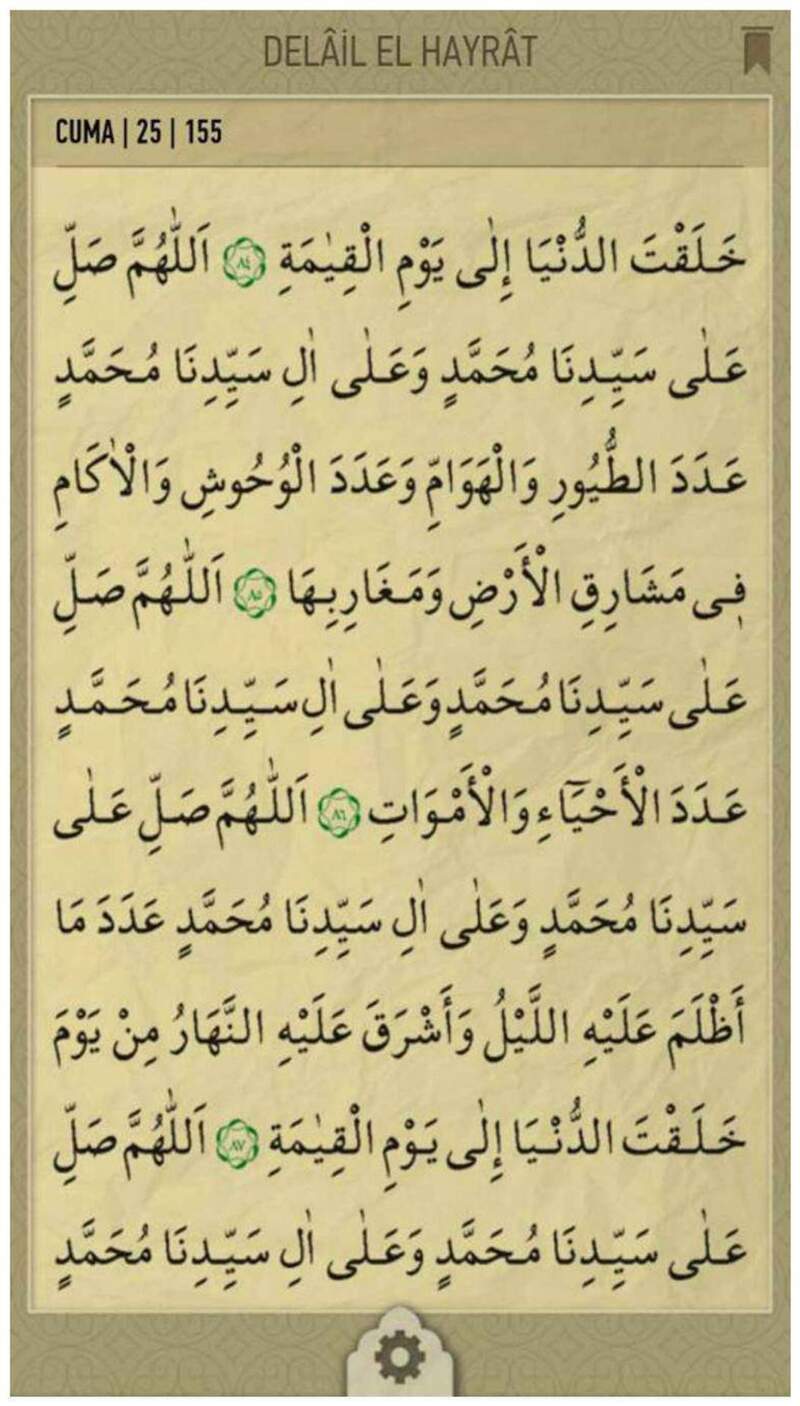 DELÂİL EL HAYRÂT
CUMA | 25 | 155
خَلَقْتَ الدُّنْيَا إِلٰى يَوْمِ الْقِيٰمَةِ ٨٤ اَللّٰهُمَّ صَلِّ
عَلٰى سَيِّدِنَا مُحَمَّدٍ وَعَلٰى اٰلِ سَيِّدِنَا مُحَمَّدٍ
عَدَدَ الطُّيُورِ وَالْهَوَامِّ وَعَدَدَ الْوُحُوشِ وَالْاٰكَامِ
فٖى مَشَارِقِ الْأَرْضِ وَمَغَارِبِهَا ٨٥ اَللّٰهُمَّ صَلِّ
عَلٰى سَيِّدِنَا مُحَمَّدٍ وَعَلٰى اٰلِ سَيِّدِنَا مُحَمَّدٍ
عَدَدَ الْأَحْيَٓاءِ وَالْأَمْوَاتِ ٨٦ اَللّٰهُمَّ صَلِّ عَلٰى
سَيِّدِنَا مُحَمَّدٍ وَعَلٰى اٰلِ سَيِّدِنَا مُحَمَّدٍ عَدَدَ مَا
أَظْلَمَ عَلَيْهِ اللَّيْلُ وَأَشْرَقَ عَلَيْهِ النَّهَارُ مِنْ يَوْمَ
خَلَقْتَ الدُّنْيَا إِلٰى يَوْمِ الْقِيٰمَةِ ٨٧ اَللّٰهُمَّ صَلِّ
عَلٰى سَيِّدِنَا مُحَمَّدٍ وَعَلٰى اٰلِ سَيِّدِنَا مُحَمَّدٍ